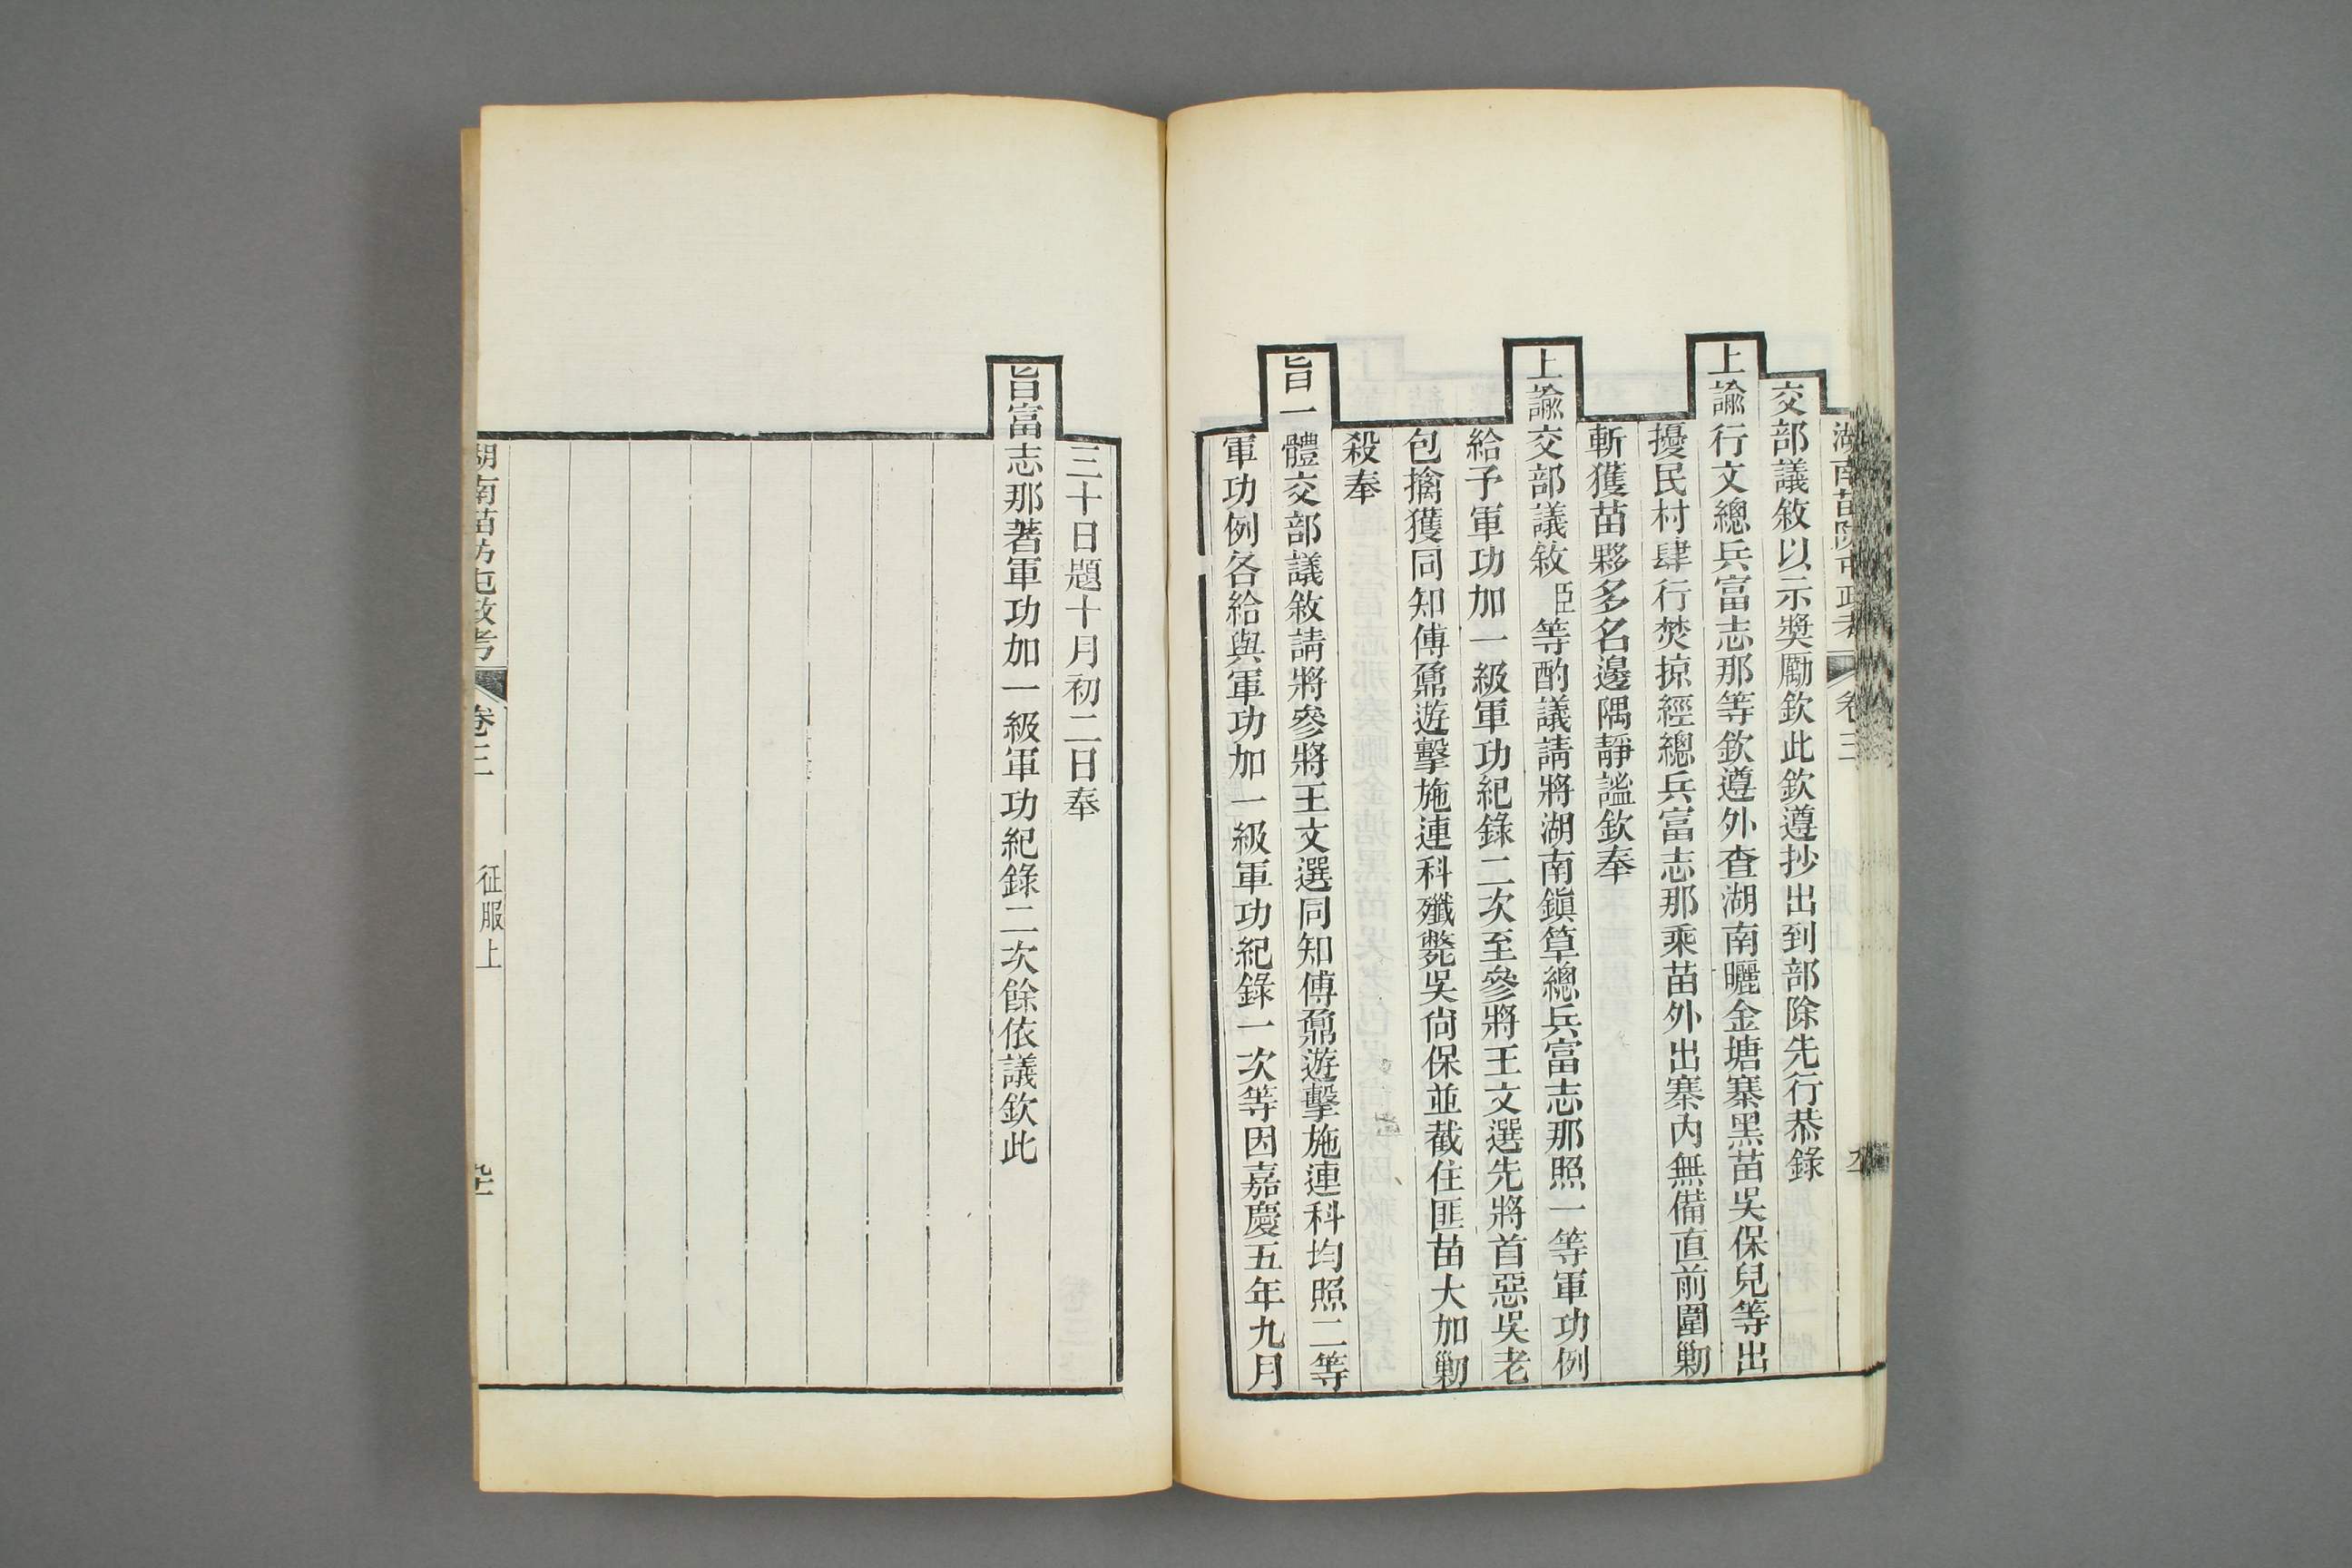 湖南苗防屯政考 卷三
交部議敘以示獎勵欽此欽遵抄出到部除先行恭錄
上諭行文總兵富志那等欽遵外查湖南曬金塘寨黑苗吳保兒等出
擾民村肆行焚掠經總兵富志那乘苗外出寨內無備直前圍勦
斬獲苗夥多名邊隅靜謐欽奉
上諭交部議敘臣等酌議請將湖南鎭筸總兵富志那照一等軍功例
給予軍功加一級軍功紀錄二次至參將王文選先將首惡吳老
包擒獲同知傅鼐遊擊施連科殲斃吳尙保並截住匪苗大加勦
殺奉
旨一體交部議敘請將參將王文選同知傅鼐遊擊施連科均照二等
軍功例各給與軍功加一級軍功紀錄一次等因嘉慶五年九月
三十日題十月初二日奉
旨富志那著軍功加一級軍功紀錄二次餘依議欽此
湖南苗防屯政考 卷三 征服上